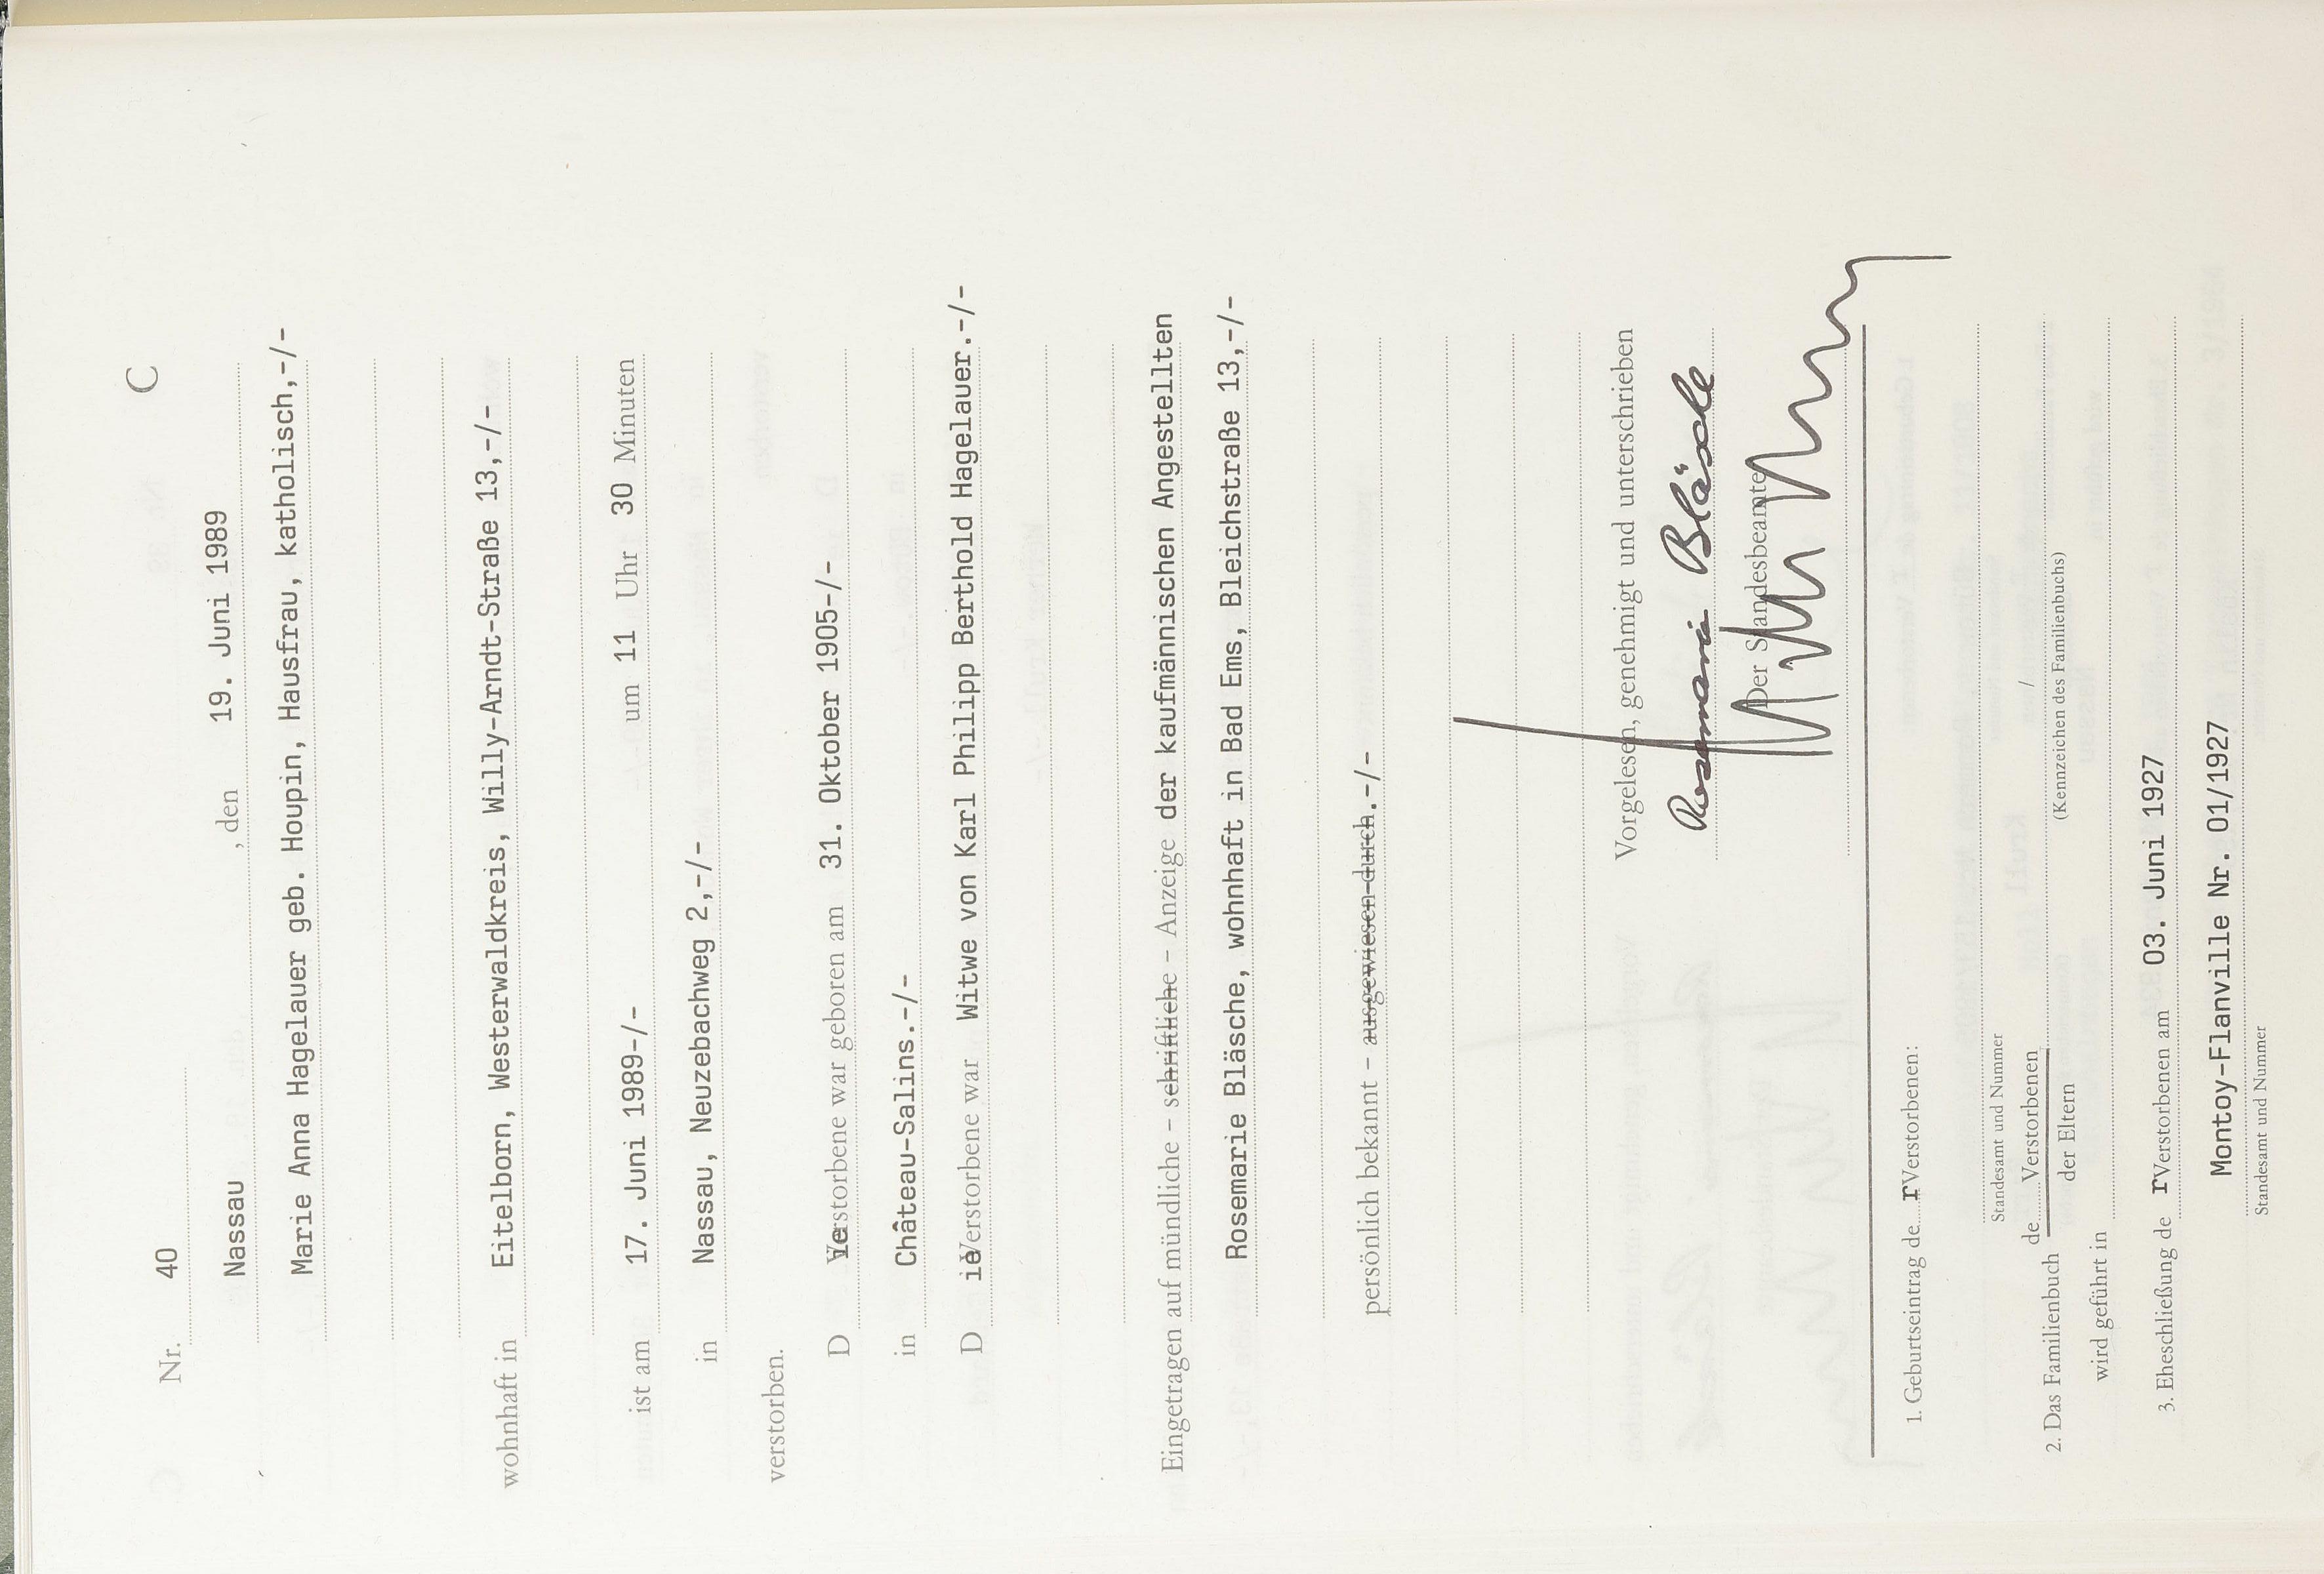 C
Nr. 40
Nassau , den 19. Juni 1989
Marie Anna Hagelauer geb. Houpin, Hausfrau, katholisch,-/-
wohnhaft in Eitelborn, Westerwaldkreis, Willy-Arndt-Straße 13,-/-
ist am 17. Juni 1989-/- um 11 Uhr 30 Minuten
in Nassau, Neuzebachweg 2,-/-
verstorben.
D ie Verstorbene war geboren am 31. Oktober 1905-/-
in Château-Salins.-/-
D ie Verstorbene war Witwe von Karl Philipp Berthold Hagelauer.-/-
Eingetragen auf mündliche – schriftliche – Anzeige der kaufmännischen Angestellten
Rosemarie Bläsche, wohnhaft in Bad Ems, Bleichstraße 13,-/-
persönlich bekannt – ausgewiesen durch.-/-
Vorgelesen, genehmigt und unterschrieben
Rosemarie Bläsche
Der Standesbeamte
1. Geburtseintrag de r Verstorbenen:
Standesamt und Nummer
2. Das Familienbuch de Verstorbenen /
der Eltern (Kennzeichen des Familienbuchs)
wird geführt in
3. Eheschließung de r Verstorbenen am 03. Juni 1927
Montoy-Flanville Nr. 01/1927
Standesamt und Nummer